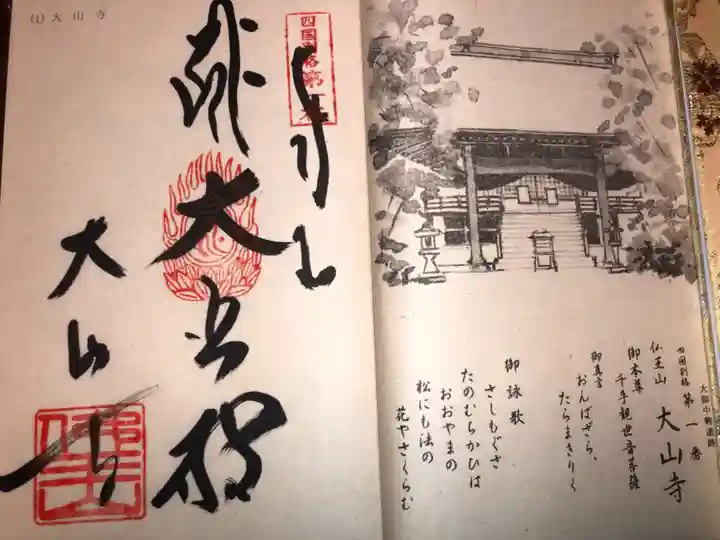 四国別格 第一番
仏王山 大山寺
御本尊
千手観世音菩薩
御真言
おんばざら、
たらまきりく
御詠歌
さしもぐさ
たのむちかひは
おおやまの
松にも法の
花やさくらむ
(1) 大山寺
大悲殿
大山寺